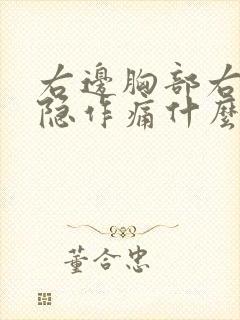 右邊胸部右
隐作痛什麼
董合忠